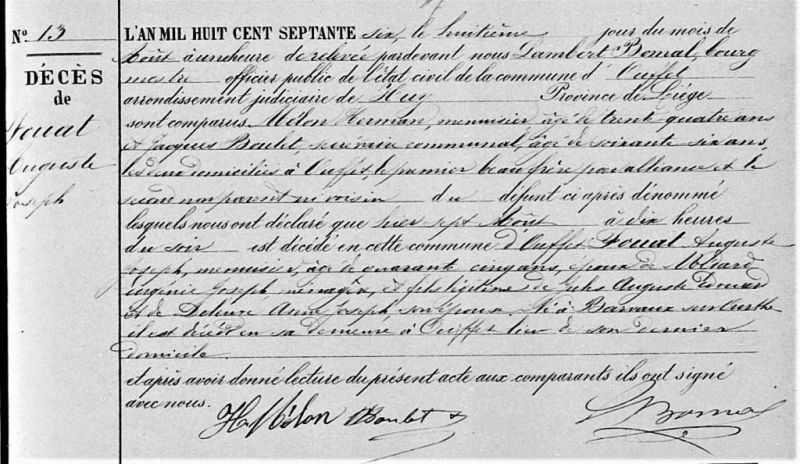 N° 13
DÉCÈS
de
Fouat
Auguste
Joseph
L'AN MIL HUIT CENT SEPTANTE six, le huitième jour du mois de
Août à une heure de relevée pardevant nous Lambert Bomal, bourg
mestre officier public de l'état civil de la commune d'Ouffet
arrondissement judiciaire de Huy Province de Liége
sont comparus Mélon Herman, menuisier âgé de trente quatre ans
et Jacques Boulet, secrétaire communal, âgé de soixante six ans,
les deux domiciliés à Ouffet, le premier beau frère par alliance et le
second non parent ni voisin du défunt ci après dénommé
lesquels nous ont déclaré que hier sept Août à dix heures
du soir est décédé en cette commune d'Ouffet Fouat Auguste
Joseph, menuisier, âgé de quarante cinq ans, époux de
Eugénie Joseph ménagère, et fils légitime de Jules Auguste Edouard
et de Anne Joseph, son épouse. Né à Barvaux sur Ourthe
il est décédé en sa demeure à Ouffet lieu de son dernier
domicile.
et après avoir donné lecture du présent acte aux comparants ils ont signé
avec nous.
H Mélon Boulet L Bomal